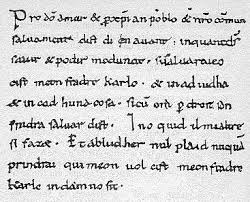 Pro dõ amur & p xpĩan poblo & nr̃o cõmun
saluament. dist di en auant. inquantdſ
ſauir & podir medunat. ſiſaluaraieo
ciſt meon fradre Karlo. & in ad iudha
& in cad huna coſa. ſicũ om p dreit ſon
fradra ſaluar diſt. I no quid il mialtre
ſi faz&. Et ab ludher nul plaid nũquã
prindrai qui meon uol ciſt meon fradre
Karle in damno ſit.